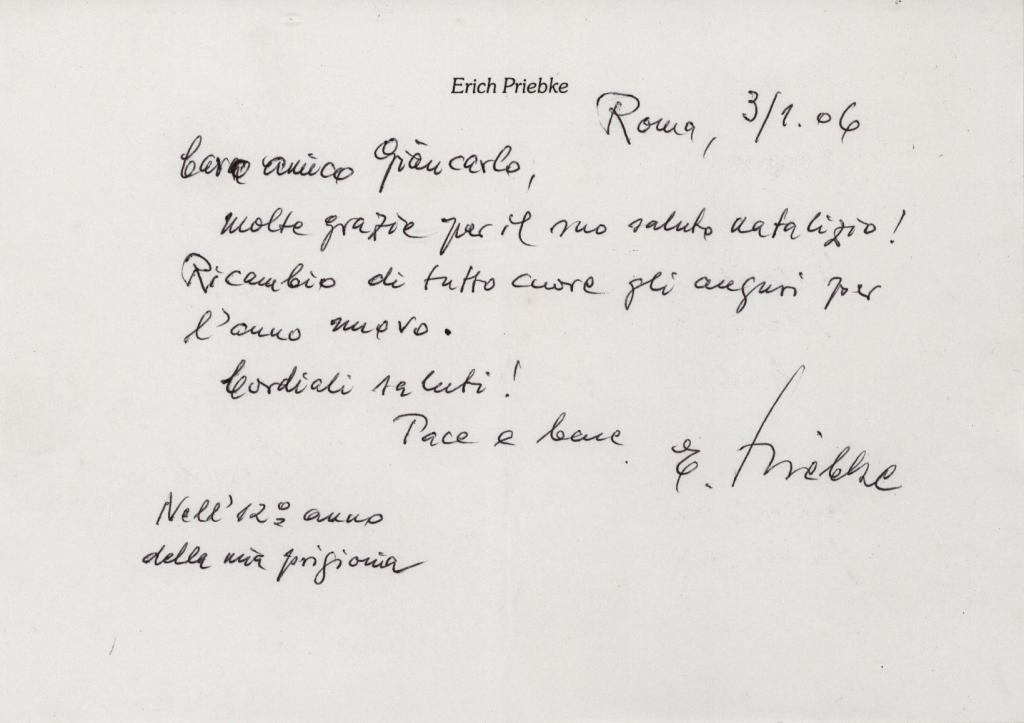 Erich Priebke
Roma, 3/1.06
Caro amico Giancarlo,
molte grazie per il suo saluto natalizio!
Ricambio di tutto cuore gli auguri per
l'anno nuovo.
Cordiali saluti!
Pace e bene
E. Priebke
Nell'12º anno
della mia prigionia